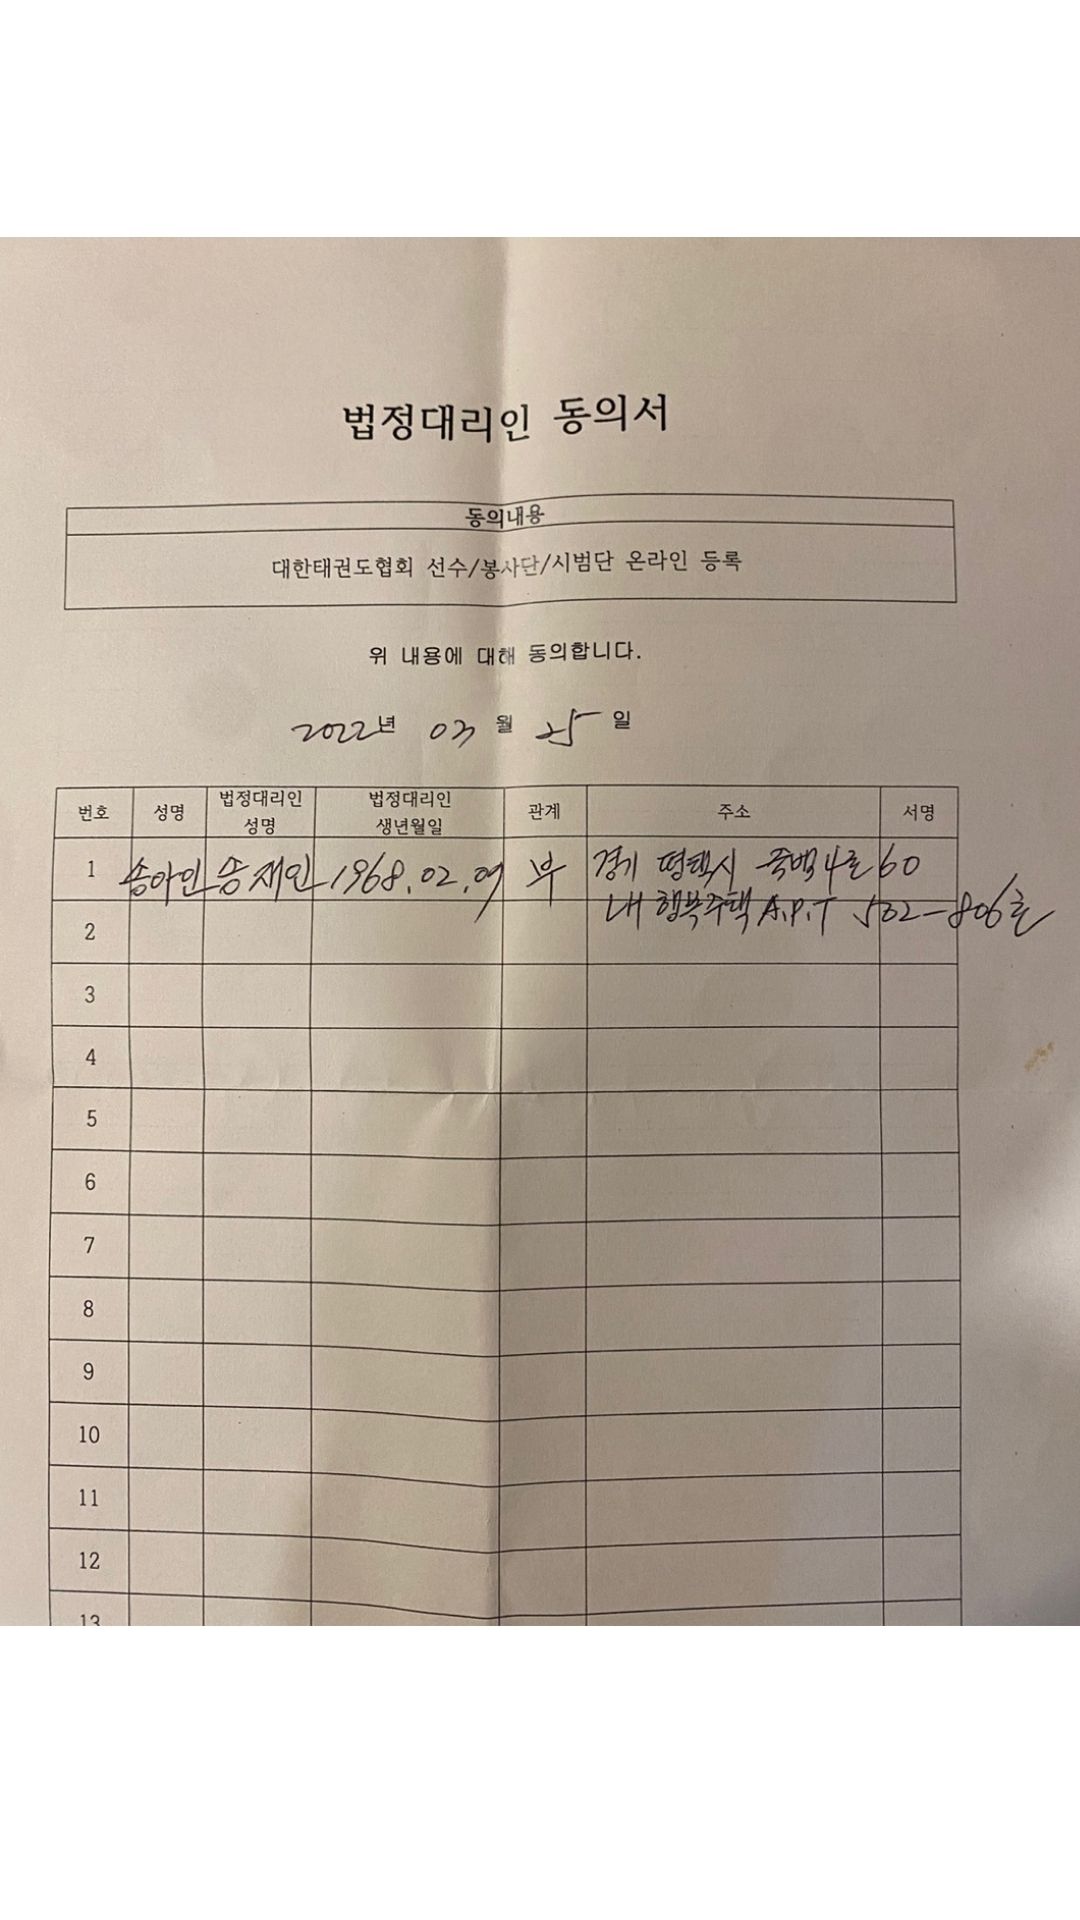 법정대리인 동의서
동의내용
대한태권도협회 선수/봉사단/시범단 온라인 등록
위 내용에 대해 동의합니다.
2022년 03 월 25 일
번호 성명 법정대리인 성명 법정대리인 생년월일 관계 주소 서명
1 송아인 송재인 1968.02.09 부 경기 평택시 죽백4로 60
내 행복주택 A.P.T 502-806호
2
3
4
5
6
7
8
9
10
11
12
13